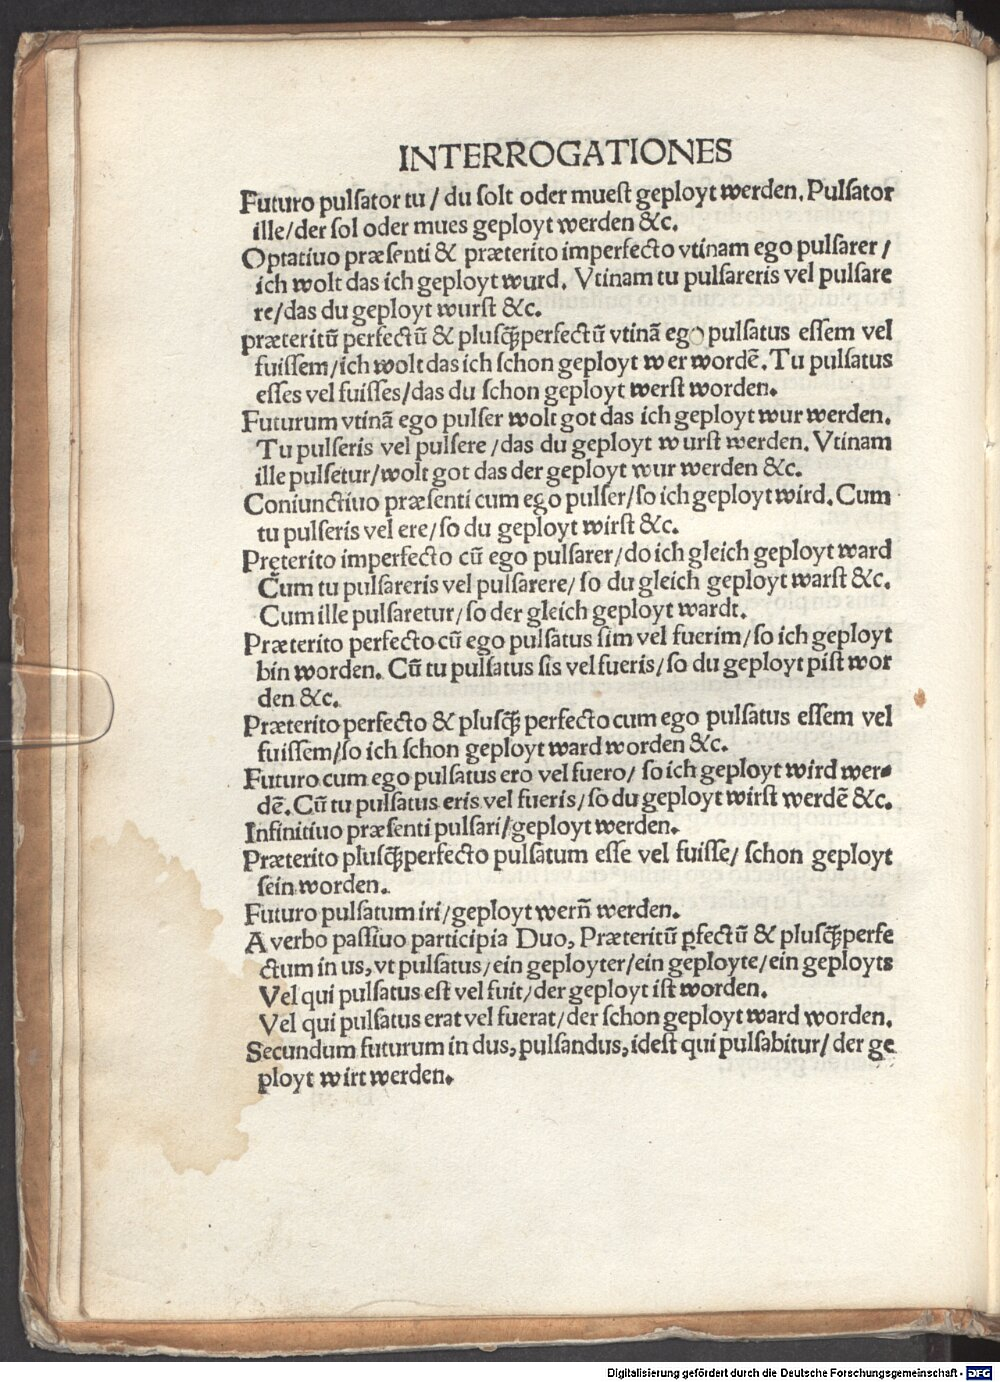 INTERROGATIONES
Futuro pulsator tu / du solt oder muest geployt werden. Pulsator
ille/der sol oder mues geployt werden &c.
Optatiuo præsenti & præterito imperfecto vtinam ego pulsarer /
ich wolt das ich geployt wurd. Vtinam tu pulsareris vel pulsare
re/das du geployt wurst &c.
præteritū perfectū & plusq̃perfectū vtinã ego pulsatus essem vel
fuissem/ich wolt das ich schon geployt wer wordē. Tu pulsatus
esses vel fuisses/das du schon geployt werst worden.
Futurum vtinã ego pulser wolt got das ich geployt wur werden.
Tu pulseris vel pulsere /das du geployt wurst werden. Vtinam
ille pulsetur/wolt got das der geployt wur werden &c.
Coniunctiuo præsenti cum ego pulser/so ich geployt wird. Cum
tu pulseris vel ere/so du geployt wirst &c.
Pręterito imperfecto cū ego pulsarer/do ich gleich geployt ward
Cum tu pulsareris vel pulsarere/ so du gleich geployt warst &c.
Cum ille pulsaretur/so der gleich geployt wardt.
Præterito perfecto cū ego pulsatus sim vel fuerim/so ich geployt
bin worden. Cū tu pulsatus sis vel fueris/so du geployt pist wor
den &c.
Præterito perfecto & plusq̃ perfecto cum ego pulsatus essem vel
fuissem/so ich schon geployt ward worden &c.
Futuro cum ego pulsatus ero vel fuero/ so ich geployt wird wer-
dē. Cū tu pulsatus eris vel fueris/so du geployt wirst werdē &c.
Infinitiuo præsenti pulsari/geployt werden.
Præterito plusq̃perfecto pulsatum esse vel fuisse/ schon geployt
sein worden.
Futuro pulsatum iri/geployt wern̄ werden.
A verbo passiuo participia Duo, Præteritū ꝑfectū & plusq̃perfe
ctum in us, vt pulsatus/ein geployter/ein geployte/ein geployts
Vel qui pulsatus est vel fuit/der geployt ist worden.
Vel qui pulsatus erat vel fuerat/der schon geployt ward worden.
Secundum futurum in dus, pulsandus, idest qui pulsabitur/ der ge
ployt wirt werden.
Digitalisierung gefördert durch die Deutsche Forschungsgemeinschaft - DFG